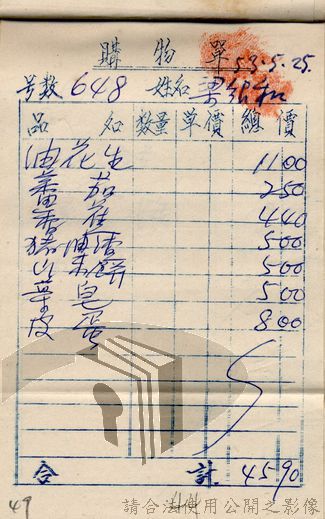 購物單 53.5.25.
号数 648 姓名
品名 数量 單價 總價
油花生 1100
蕃茄 250
香蕉 440
500
500
500
皮蛋 800
合計 4590
49
請合法使用公開之影像